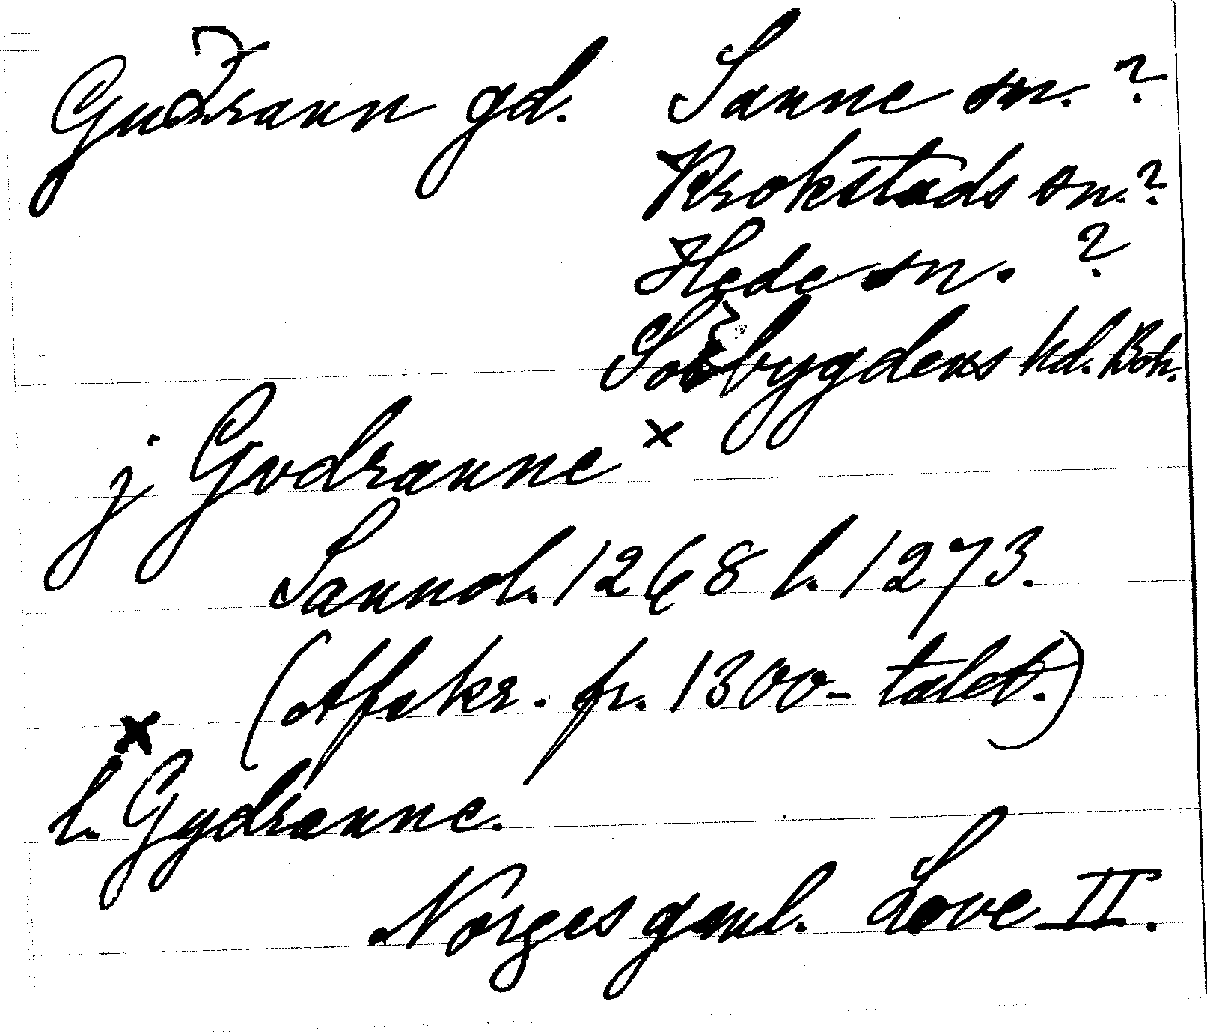 Gudrann gd. Sanne sn. ?
Krokstads sn. ?
Hede sn. ?
Sörbygdens hd. Boh.
j Gvdranne ×
Sannol. 1268 l. 1273.
(Afskr. fr. 1300-talet.)
×
l. Gydranne.
Norges gaml. Love II.